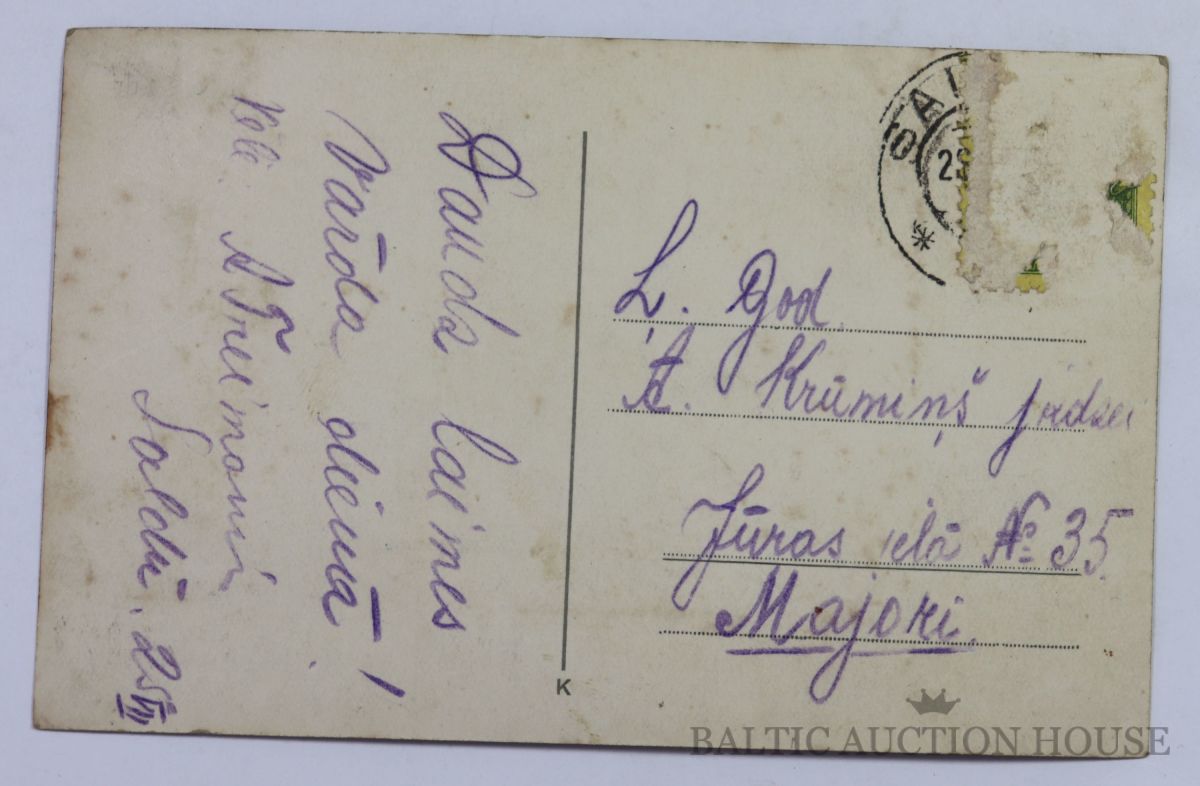 Daudz laimes
Vārda dienā!
Vēlē.
A Freimani
Saldū. 25/VII
SAL
25
L. God.
A. Krūmiņš jrdzei
Jūras ielā № 35
Majori.
K
BALTIC AUCTION HOUSE